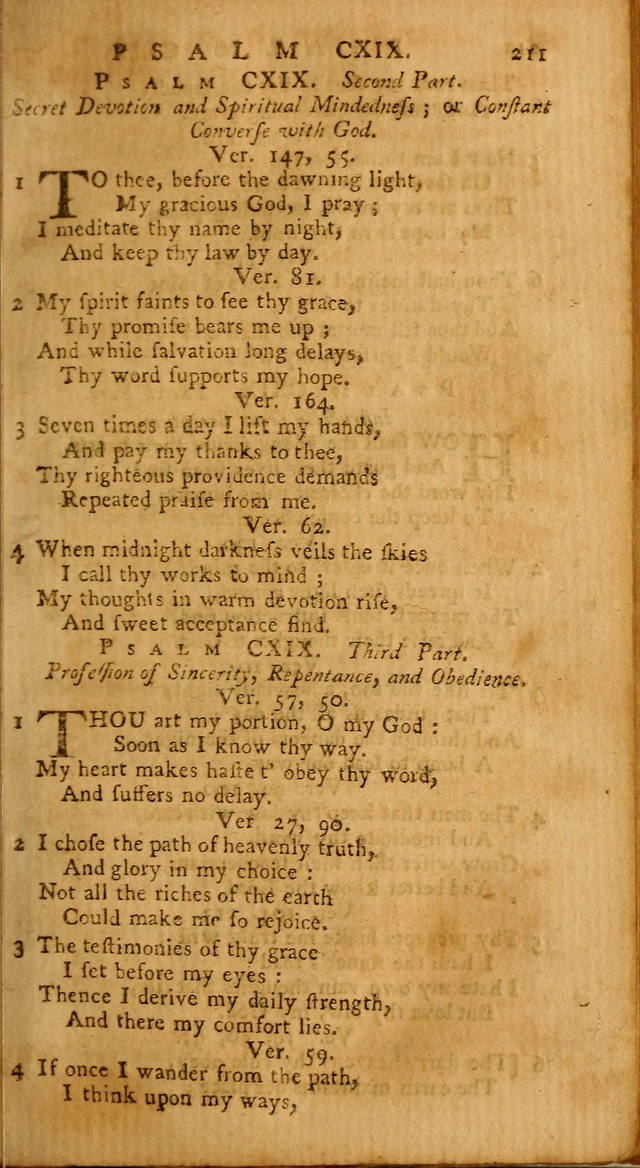 PSALM CXIX. 211
PSALM CXIX. Second Part.
Secret Devotion and Spiritual Mindedneſs ; or Conſtant
Converſe with God.
Ver. 147, 55.
1 TO thee, before the dawning light,
My gracious God, I pray ;
I meditate thy name by night,
And keep thy law by day.
Ver. 81.
2 My ſpirit faints to ſee thy grace,
Thy promiſe bears me up ;
And while ſalvation long delays,
Thy word ſupports my hope.
Ver. 164.
3 Seven times a day I lift my hands,
And pay my thanks to thee,
Thy righteous providence demands
Repeated praiſe from me.
Ver. 62.
4 When midnight darkneſs veils the ſkies
I call thy works to mind ;
My thoughts in warm devotion riſe,
And ſweet acceptance find.
PSALM CXIX. Third Part.
Profeſſion of Sincerity, Repentance, and Obedience.
Ver. 57, 50.
1 THOU art my portion, O my God :
Soon as I know thy way.
My heart makes haſte t' obey thy word,
And ſuffers no delay.
Ver 27, 90.
2 I choſe the path of heavenly truth,
And glory in my choice :
Not all the riches of the earth
Could make me ſo rejoice.
3 The teſtimonies of thy grace
I ſet before my eyes :
Thence I derive my daily ſtrength,
And there my comfort lies.
Ver. 59.
4 If once I wander from the path,
I think upon my ways,